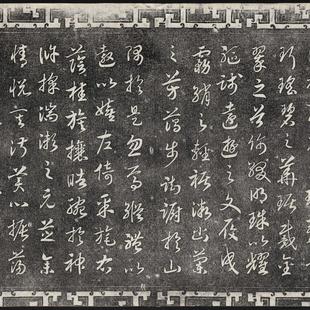 珥瑤碧之華琚戴金
翠之首飾綴明珠以耀
軀踐遠遊之文履曳
霧綃之輕裾微幽蘭
之芳藹步踟躕於山
隅於是忽焉縱體以
遨以嬉左倚采旄右
蔭桂旗攘皓腕於神
滸採湍瀨之玄芝余
情悅其淑美心振蕩